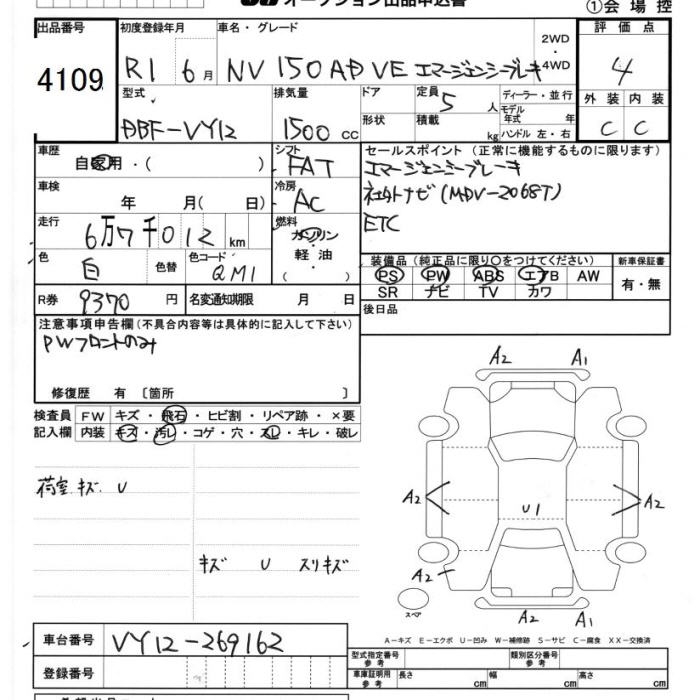 オークション出品申込書
①会場控
出品番号 初度登録年月 車名・グレード 評価点
4109 R1 6月 NV150AD VE エマージェンシーブレーキ 2WD・4WD 4
型式 排気量 ドア 定員 5人 ディーラー・並行 外装 内装
DBF-VY12 1500cc 形状 積載 kg モデル年式 年 ハンドル 左・右 C C
車歴 自家用・( ) シフト FAT セールスポイント(正常に機能するものに限ります)
エマージェンシーブレーキ
車検 年 月( 日) 冷房 AC 社外ナビ(MDV-2068T)
走行 6万7千012km 燃料 ガソリン・軽油・( ) ETC
色 白 色替 色コード QM1 装備品(純正品に限り○をつけてください) 新車保証書
PS PW ABS エアB AW 有・無
SR ナビ TV カワ
R券 9370円 名変通知期限 月 日 後日品
注意事項申告欄(不具合内容等は具体的に記入して下さい)
PWフロントのみ
修復歴 有〔箇所 〕
検査員 FW キズ・飛石・ヒビ割・リペア跡・×要
記入欄 内装 キズ・汚レ・コゲ・穴・スレ・キレ・破レ
荷室キズ U
キズ U スリキズ
A2 A1
A2 U1 A2
A2
スペア A2 A1
A-キズ E-エクボ U-凹み W-補修跡 S-サビ C-腐食 XX-交換済
車台番号 VY12-269162
型式指定番号 参考 類別区分番号 参考
登録番号 車庫証明用 参考 長さ cm 幅 cm 高さ cm